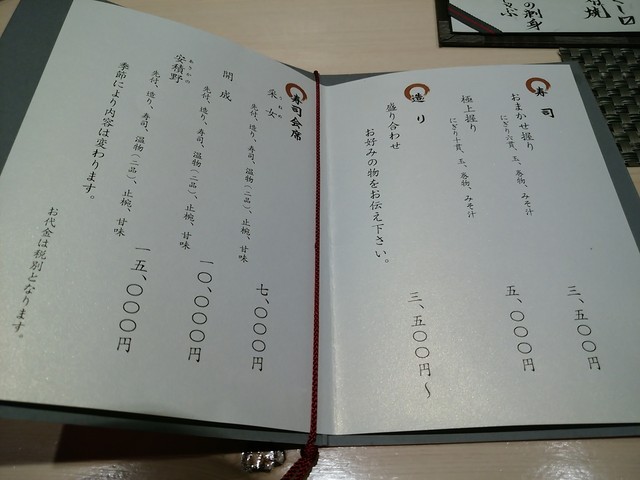 寿司
おまかせ握り
にぎり八貫、玉、巻物、みそ汁
三、五〇〇円
極上握り
にぎり十貫、玉、巻物、みそ汁
五、〇〇〇円
造り
盛り合わせ
三、五〇〇円〜
お好みの物をお伝え下さい。
寿司会席
采女
先付、造り、寿司、温物(二品)、止椀、甘味
七、〇〇〇円
開成
先付、造り、寿司、温物(二品)、止椀、甘味
一〇、〇〇〇円
あさかの
安積野
先付、造り、寿司、温物(二品)、止椀、甘味
一五、〇〇〇円
季節により内容は変わります。
お代金は税別となります。
の刺身